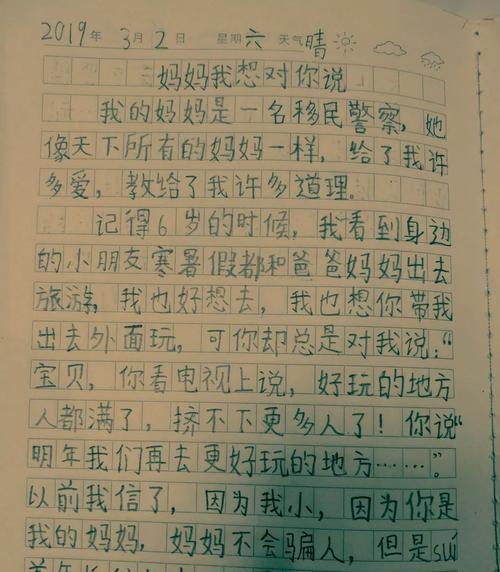 2019年 3月2日 星期六 天气晴
妈妈我想对你说
我的妈妈是一名移民警察，她
像天下所有的妈妈一样，给了我许
多爱，教给了我许多道理。
记得6岁的时候，我看到身边
的小朋友寒暑假都和爸爸妈妈出去
旅游，我也好想去，我也想你带我
出去外面玩，可你却总是对我说：“
宝贝，你看电视上说，好玩的地方
人都满了，挤不下更多人了！你说“
明年我们再去更好玩的地方……”。
以前我信了，因为我小，因为你是
我的妈妈，妈妈不会骗人，但是suí